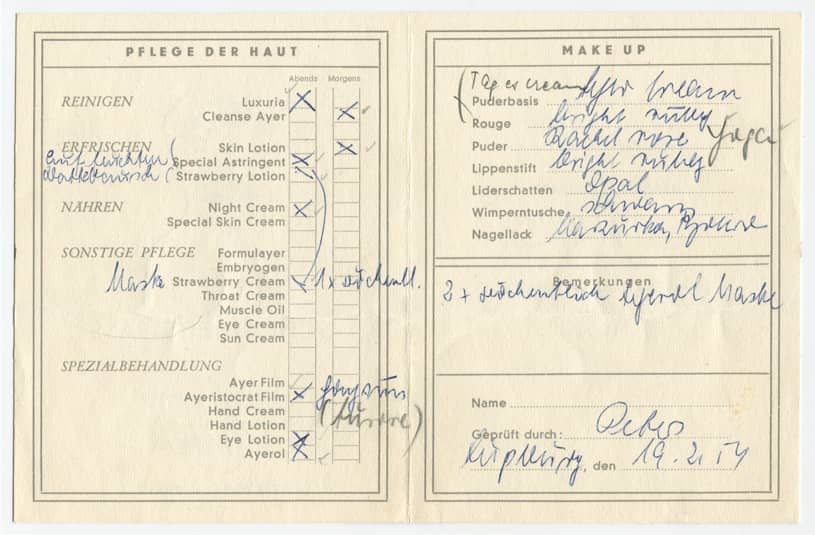 PFLEGE DER HAUT
Abends Morgens
REINIGEN Luxuria
Cleanse Ayer
ERFRISCHEN Skin Lotion
Special Astringent
Strawberry Lotion
NÄHREN Night Cream
Special Skin Cream
SONSTIGE PFLEGE Formulayer
Embryogen
Maske Strawberry Cream 1 x wöchentl.
Throat Cream
Muscle Oil
Eye Cream
Sun Cream
SPEZIALBEHANDLUNG
Ayer Film
Ayeristocrat Film
Hand Cream
Hand Lotion
Eye Lotion
Ayerol
MAKE UP
(Tagescream
Puderbasis Ayer Cream
Rouge bright ruby
Puder Rachel rose
Lippenstift bright ruby
Liderschatten Opal
Wimperntusche schwarz
Nagellack Mazurka,
Bemerkungen
2 x wöchentlich Maske
Name
Geprüft durch: Peters
Augsburg, den 19.2.54